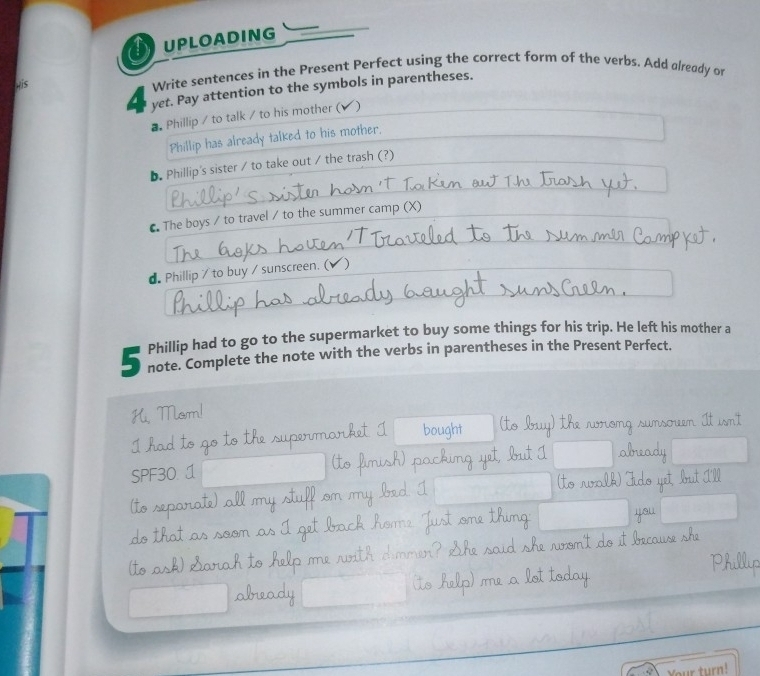 UPLOADING
4 Write sentences in the Present Perfect using the correct form of the verbs. Add already or
yet. Pay attention to the symbols in parentheses.
a. Phillip / to talk / to his mother (✓)
Phillip has already talked to his mother.
b. Phillip's sister / to take out / the trash (?)
Phillip's sister hasn't Taken out The Trash yet.
c. The boys / to travel / to the summer camp (X)
The boys haven't Traveled to the summer Camp yet.
d. Phillip / to buy / sunscreen. (✓)
Phillip has already bought sunscreen.
5 Phillip had to go to the supermarket to buy some things for his trip. He left his mother a
note. Complete the note with the verbs in parentheses in the Present Perfect.
Hi, Mom!
I had to go to the supermarket I bought (to buy) the wrong sunscreen It isn't
SPF30 I (to finish) packing yet, but I already
(to separate) all my stuff on my bed I (to walk) Fido yet, but I'll
do that as soon as I get back home Just one thing you
(to ask) Sarah to help me with dinner? She said she won't do it because she
already (to help) me a lot today
Phillip
Your turn!